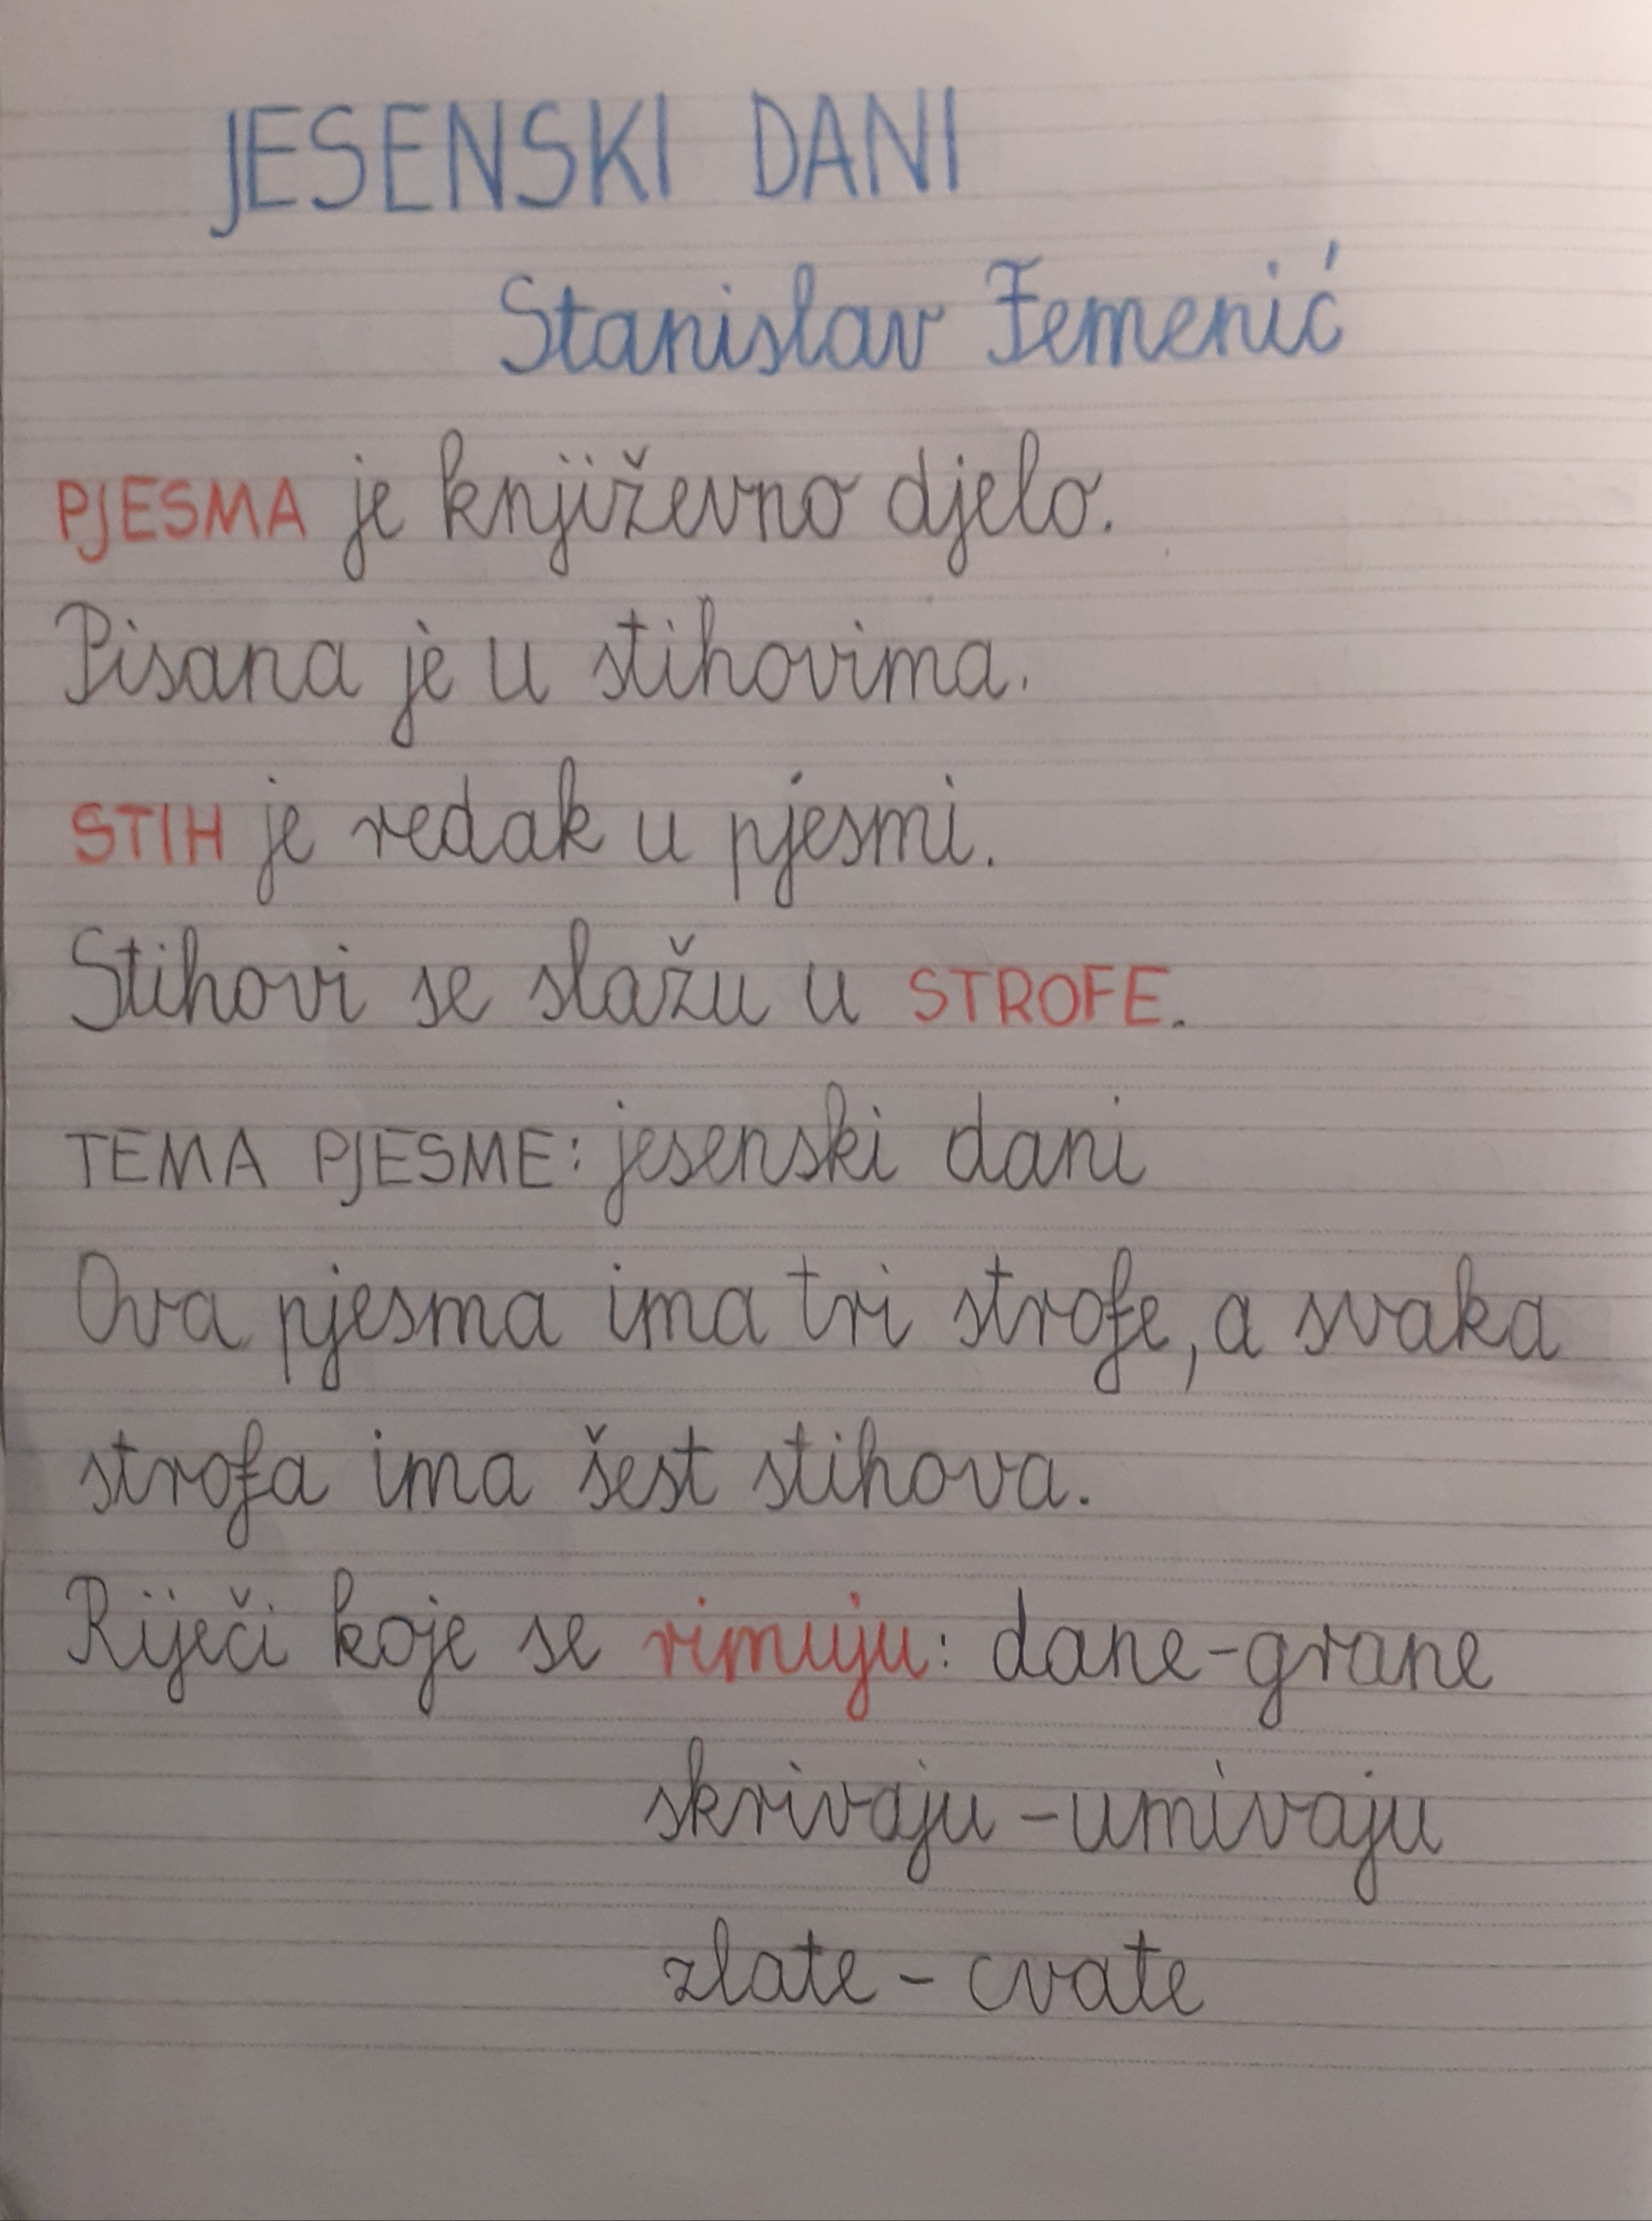 JESENSKI DANI
Stanislav Femenić
PJESMA je književno djelo.
Pisana je u stihovima.
STIH je redak u pjesmi.
Stihovi se slažu u STROFE.
TEMA PJESME: jesenski dani
Ova pjesma ima tri strofe, a svaka
strofa ima šest stihova.
Riječi koje se rimuju: dane-grane
skrivaju - umivaju
zlate - cvate